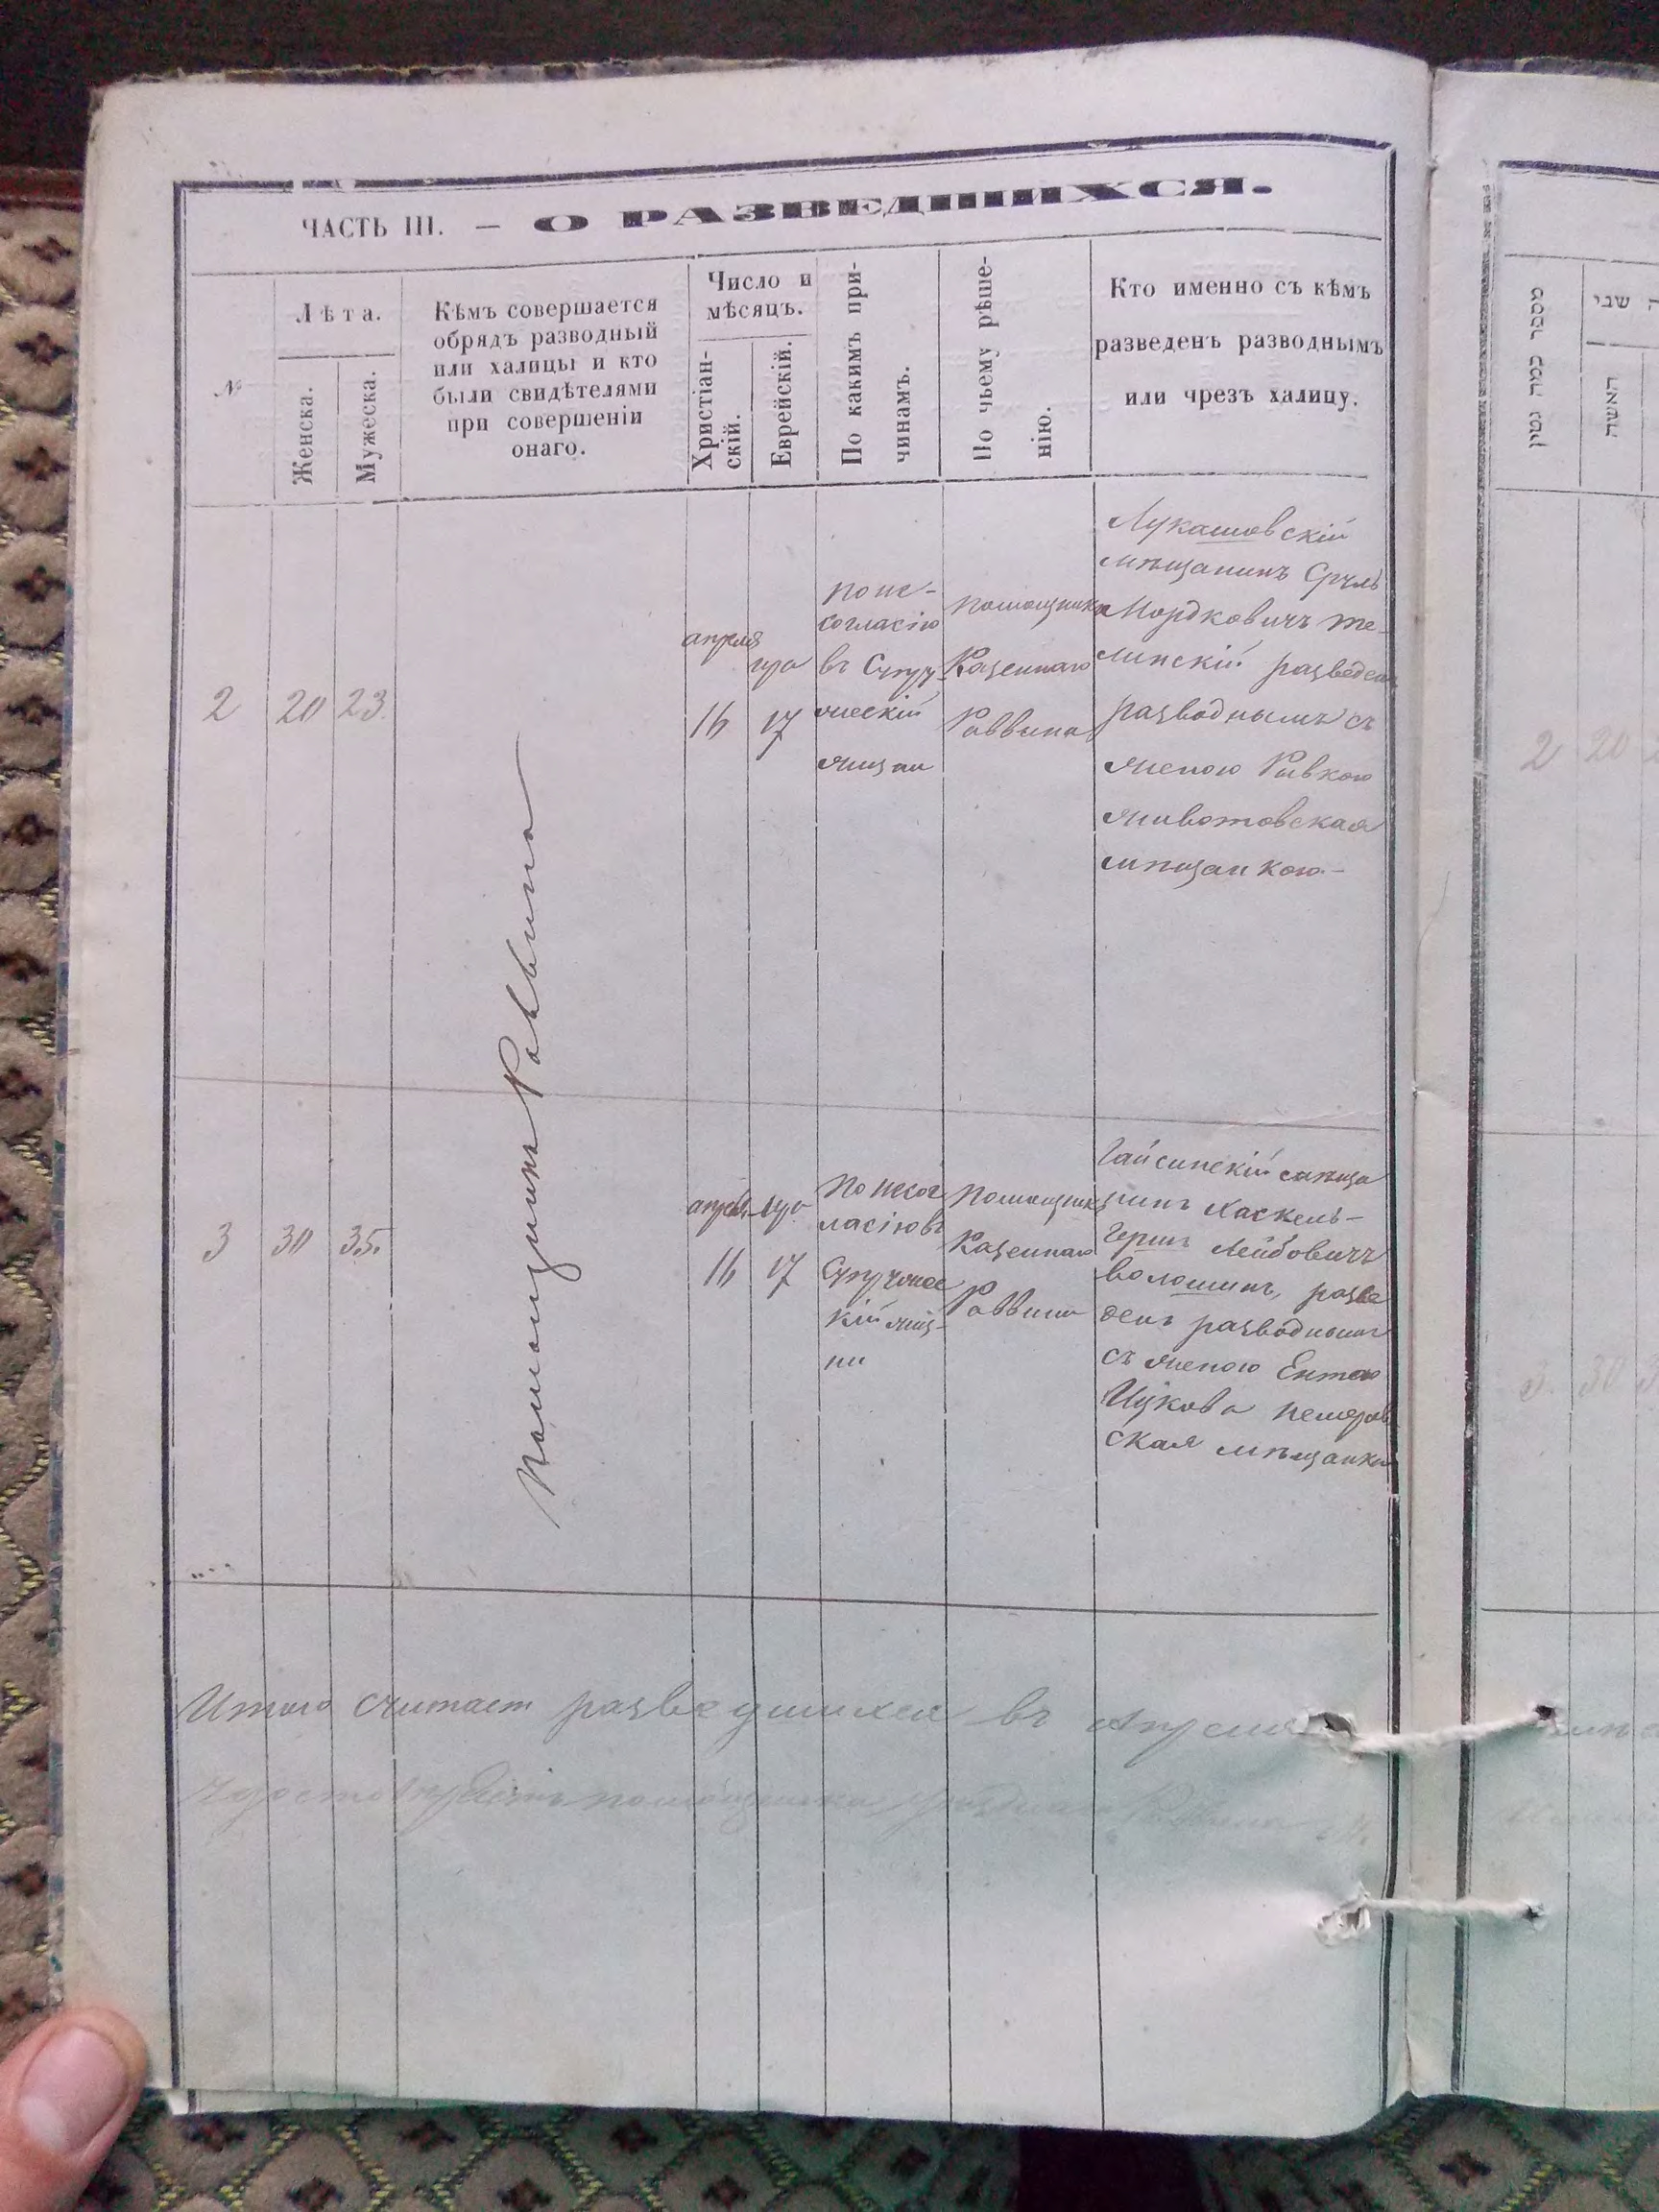 ЧАСТЬ III. — О РАЗВЕДШИХСЯ.
№
Лѣта.
Женска.
Мужеска.
Кѣмъ совершается
обрядъ разводный
или халицы и кто
были свидѣтелями
при совершеніи
онаго.
Число и
мѣсяцъ.
Христіан-
скій.
Еврейскій.
По какимъ при-
чинамъ.
По чьему рѣше-
нію.
Кто именно съ кѣмъ
разведенъ разводнымъ
или чрезъ халицу.
2
20
23.
Помощникъ Раввина
апреля
16
іуо
17
по не-
согласію
въ Супру-
жескій
жизни
помощника
Казеннаго
Раввина
Лукашовскій
мѣщанинъ Сруль
Мордковичъ те-
линскій разведенъ
разводнымъ съ
женою Ривкою
животовская
мѣщанкою-
3
30
35.
апреля
16
іуо
17
По несог
ласію въ
Супружес
кій жиз-
ни
помощника
Казеннаго
Раввина
Гайсинскій мѣща
нинъ Хаскель-
Гершъ Лейбовичъ
волошинъ, разве
денъ разводнымъ
съ женою Ентею
Ицкова немеров
ская мѣщанкою
Итого считает разведшихся въ Апреля
помощника Раввина
האשה
2 20
3. 30